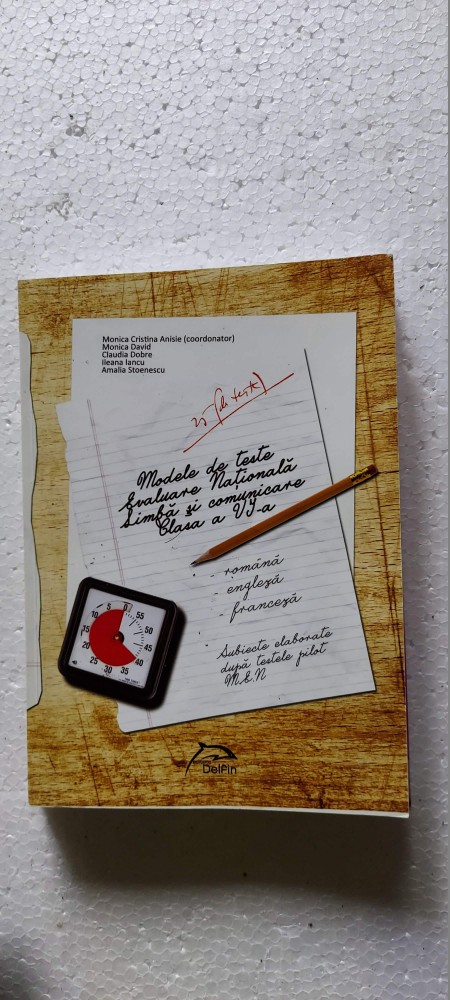 Monica Cristina Anisie (coordonator)
Monica David
Claudia Dobre
Ileana Iancu
Amalia Stoenescu
25 (de teste)
Modele de teste
Evaluare Naţională
Limbă şi comunicare
Clasa a VI-a
română
engleză
franceză
Subiecte elaborate
după testele pilot
M.E.N
0
5
55
10
50
15
45
20
40
25
30
35
Delfin